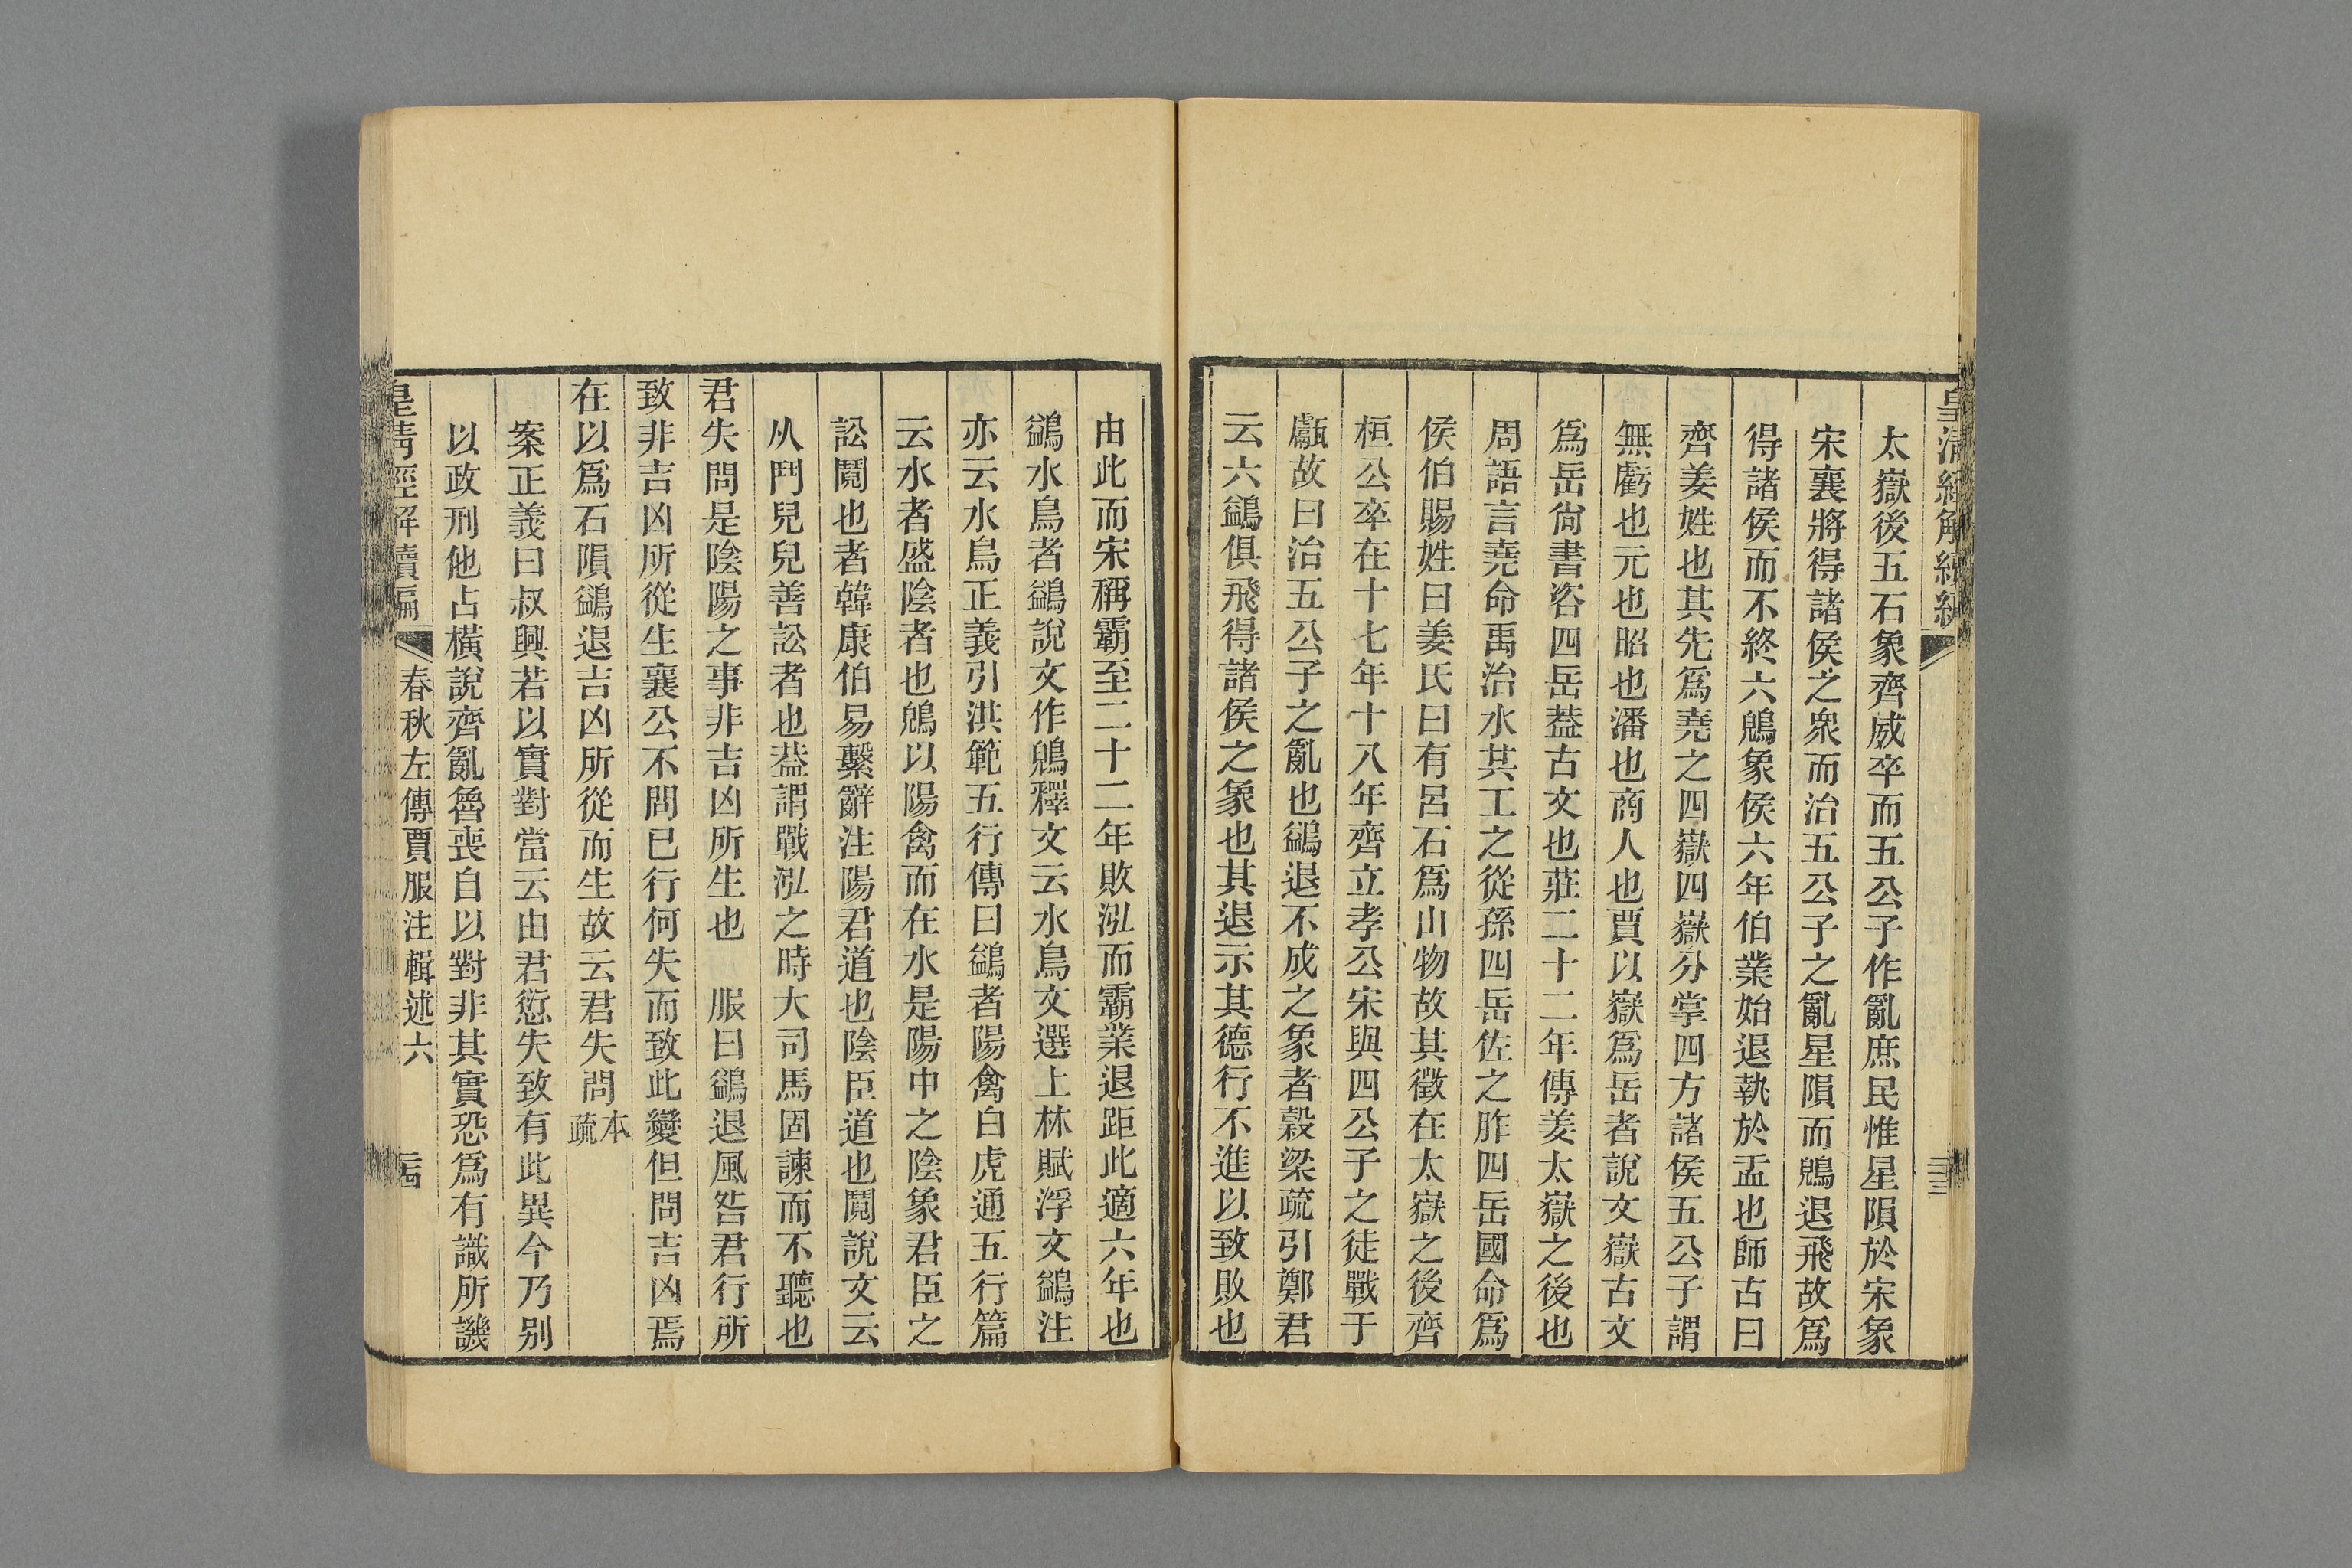 皇清經解續編
太嶽後五石象齊威卒而五公子作亂庶民惟星隕於宋象
宋襄將得諸侯之衆而治五公子之亂星隕而鶂退飛故爲
得諸侯而不終六鶂象侯六年伯業始退執於盂也師古曰
齊姜姓也其先爲堯之四嶽四嶽分掌四方諸侯五公子謂
無虧也元也昭也潘也商人也賈以嶽爲岳者說文嶽古文
爲岳尙書咨四岳葢古文也莊二十二年傳姜太嶽之後也
周語言堯命禹治水共工之從孫四岳佐之胙四岳國命爲
侯伯賜姓曰姜氏曰有呂石爲山物故其徵在太嶽之後齊
桓公卒在十七年十八年齊立孝公宋與四公子之徒戰于
甗故曰治五公子之亂也鷁退不成之象者穀梁疏引鄭君
云六鷁俱飛得諸侯之象也其退示其德行不進以致敗也
由此而宋稱霸至二十二年敗泓而霸業退距此適六年也
鷁水鳥者鷁說文作鶂釋文云水鳥文選上林賦浮文鷁注
亦云水鳥正義引洪範五行傳曰鷁者陽禽白虎通五行篇
云水者盛陰者也鶂以陽禽而在水是陽中之陰象君臣之
訟鬩也者韓康伯易繫辭注陽君道也陰臣道也鬩說文云
从鬥兒兒善訟者也葢謂戰泓之時大司馬固諫而不聽也
君失問是陰陽之事非吉凶所生也　服曰鷁退風咎君行所
致非吉凶所從生襄公不問已行何失而致此變但問吉凶焉
在以爲石隕鷁退吉凶所從而生故云君失問本疏
案正義曰叔興若以實對當云由君愆失致有此異今乃別
以政刑他占橫說齊亂魯喪自以對非其實恐爲有識所譏
皇清經解續編　春秋左傳賈服注輯述六　二四